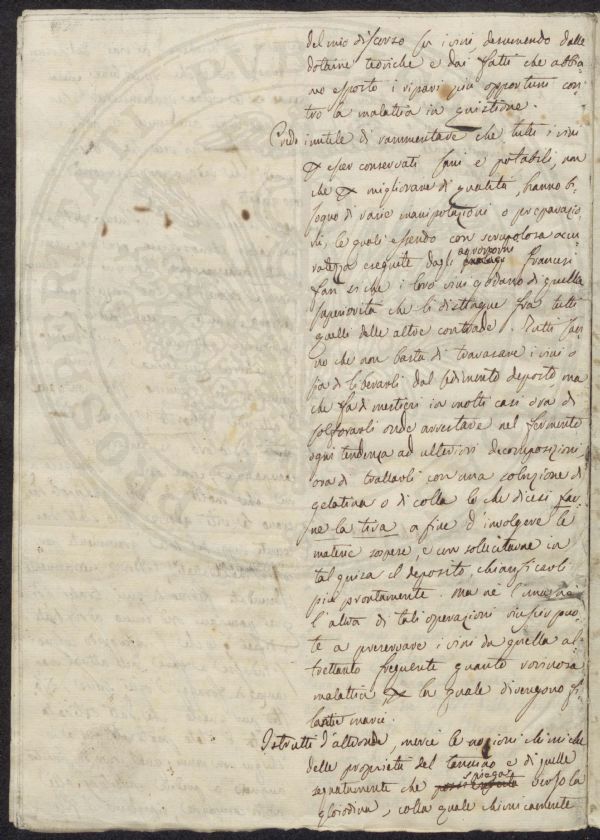 del mio discorso su i vini, desumendo dalle
dottrine teoriche e dai fatti che abbia-
mo esposto i ripari più opportuni con-
tro la malattia in quistione.
Credo inutile di rammentare che tutti i vini
esser conservati sani e potabili, non
che migliorare di qualità, hanno bi-
sogno di varie manipolazioni o preparazio-
ni, le quali essendo con scrupolosa accu-
ratezza eseguite dagli agronomi francesi
fan sì che i loro vini godano di quella
superiorità che li distingue fra tutti
quelli delle altre contrade. Tutti san-
no che non basta di travasare i vini o
sia di liberarli dal sedimento deposto, ma
che fa di mestieri in molti casi ora di
solforarli onde arrestare nel fermento
ogni tendenza ad ulteriori decomposizioni
ora di trattarli con una soluzione di
gelatina o di colla lo che dicesi far-
ne la tira a fine d'involgere le
materie sospese, e con sollecitarne in
tal guisa il deposito, chiarificarli
più prontamente. Ma nè l'una nè
l'altra di tali operazioni riuscir puo-
te a preservare i vini da quella al-
trettanto frequente quanto rovinosa
malattia la quale divengono fi-
lanti marci.
Istrutti d'altronde, mercè le nozioni chimiche
delle proprietà del tannino e di quelle
segnatamente che spiega verso la
gloiodina, colla quale chimicamente